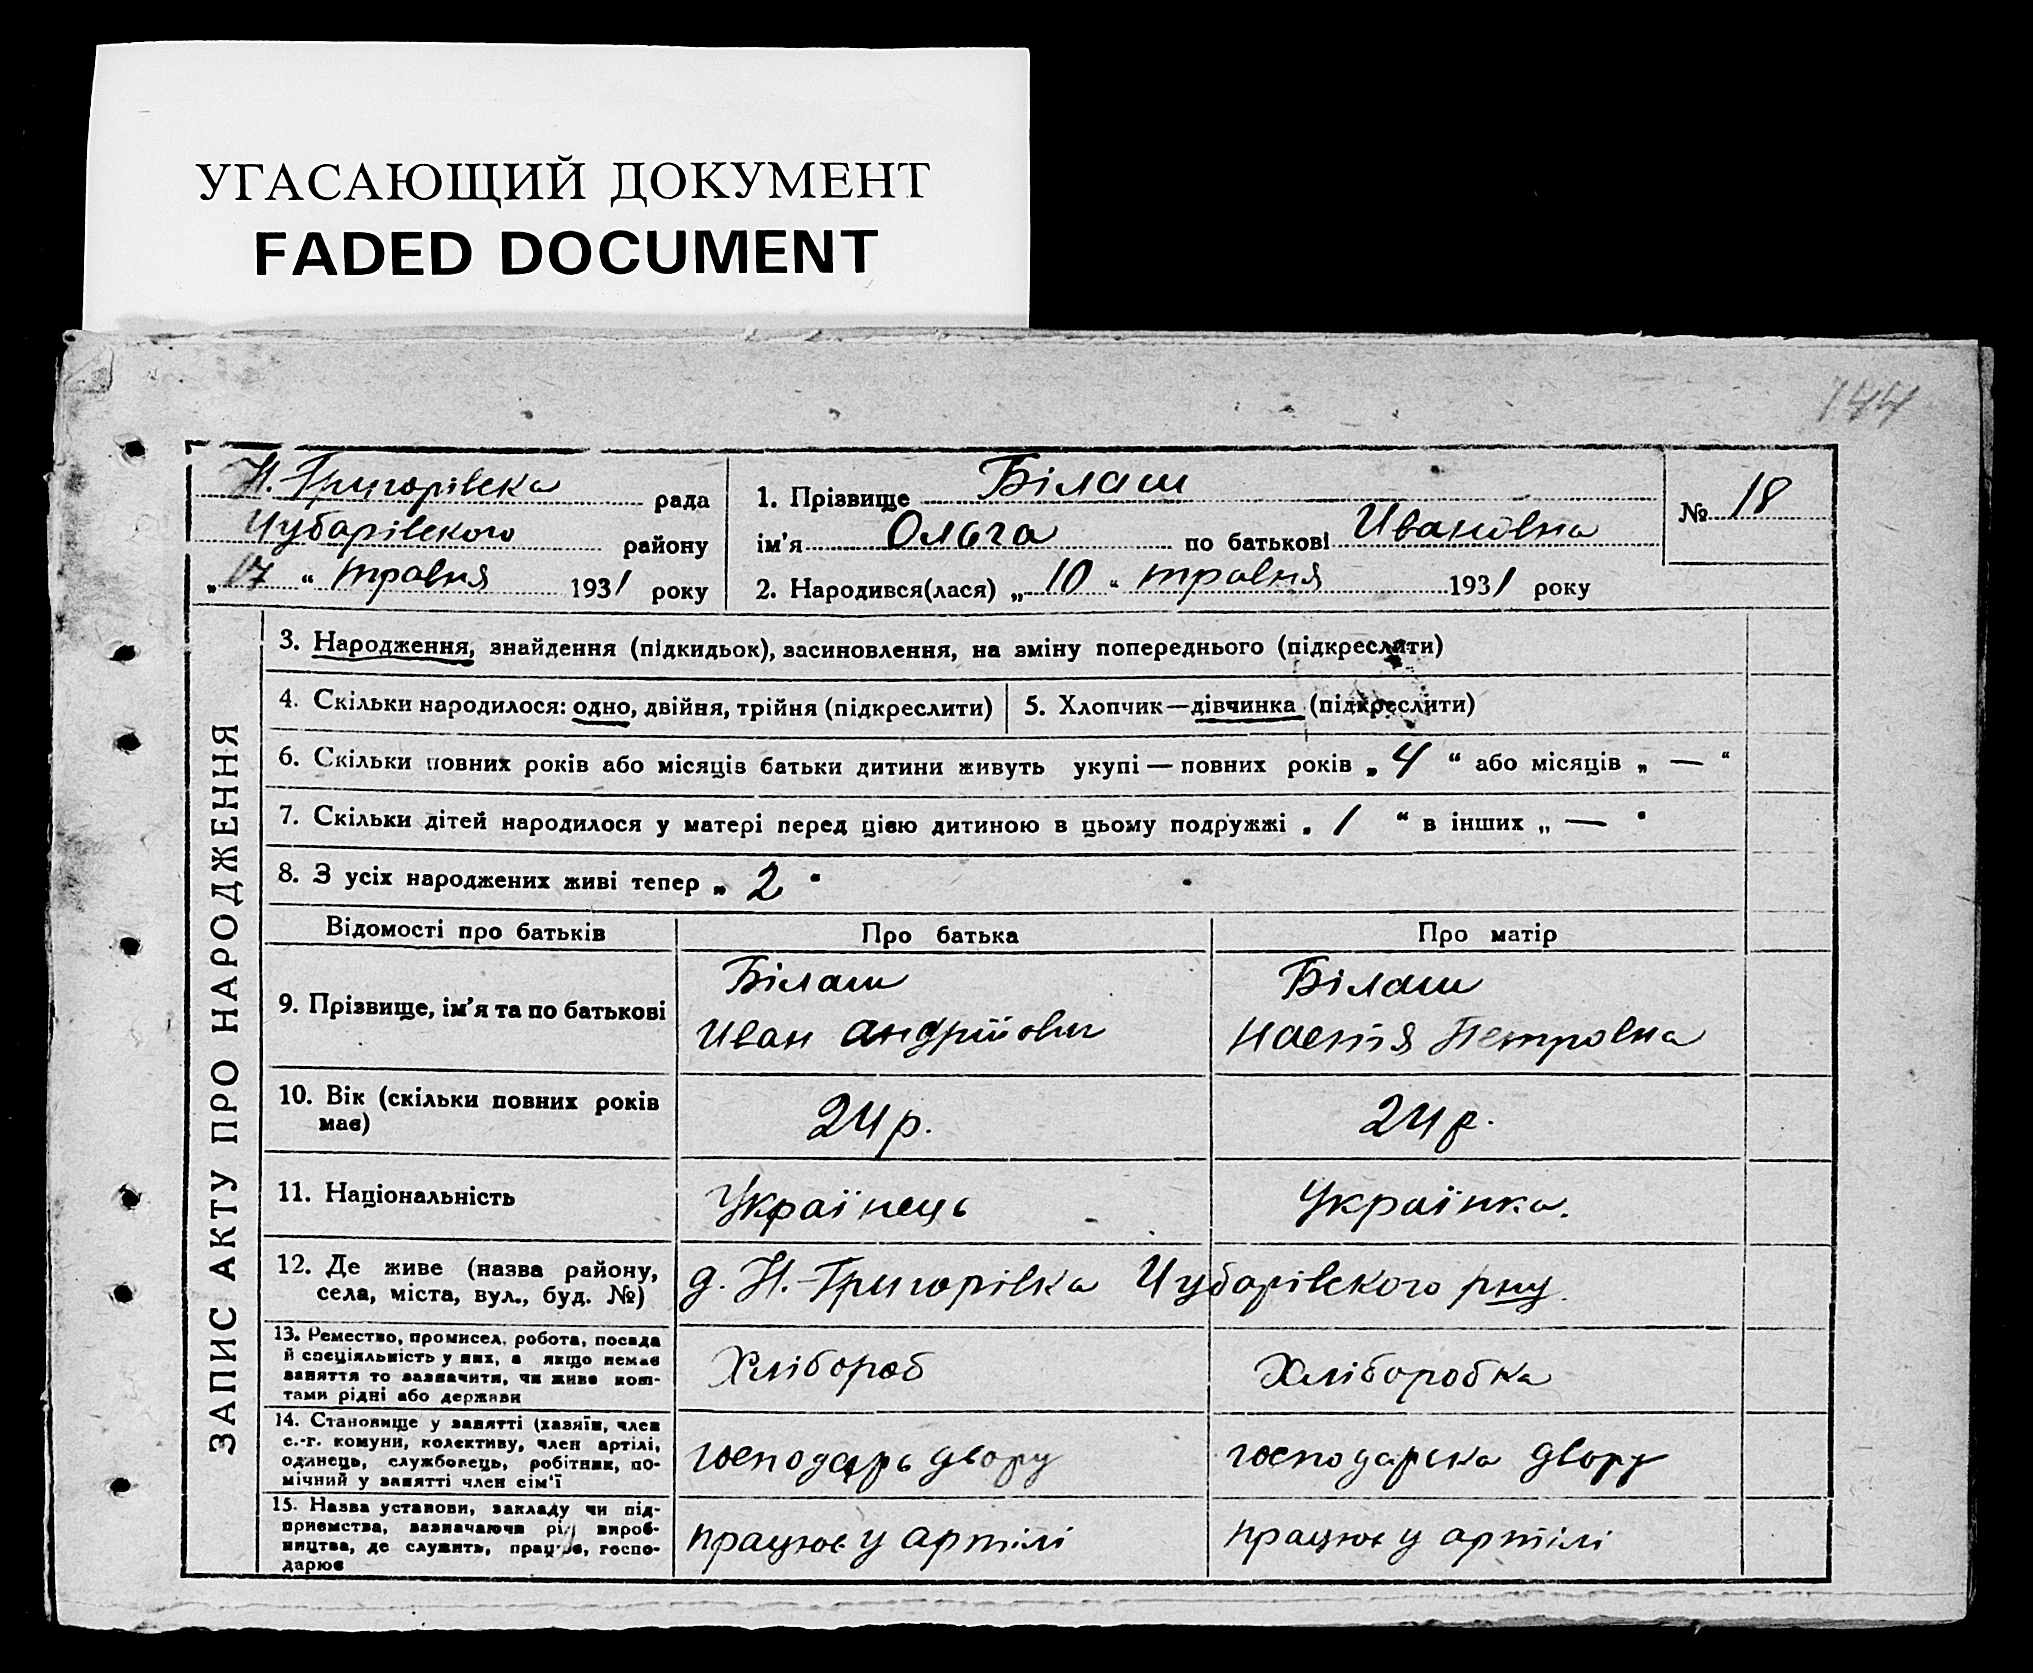 УГАСАЮЩИЙ ДОКУМЕНТ
FADED DOCUMENT
144
Н. Григорівска рада
Чубарівского району
„17“ травня 1931 року
1. Прізвище Білаш
ім'я Ольга по батькові Ивановна
№ 18
2. Народився(лася) „10“ травня 1931 року
ЗАПИС АКТУ ПРО НАРОДЖЕННЯ
3. Народження, знайдення (підкидьок), засиновлення, на зміну попереднього (підкреслити)
4. Скільки народилося: одно, двійня, трійня (підкреслити) 5. Хлопчик—дівчинка (підкреслити)
6. Скільки повних років або місяців батьки дитини живуть укупі — повних років „4“ або місяців „—“
7. Скільки дітей народилося у матері перед цією дитиною в цьому подружжі „1“ в інших „—“
8. З усіх народжених живі тепер „2“
Відомості про батьків Про батька Про матір
9. Прізвище, ім'я та по батькові
Білаш
Иван Андрійович
Білаш
Настя Петровна
10. Вік (скільки повних років
має)
24 р.
24 р.
11. Національність Українець Українка.
12. Де живе (назва району,
села, міста, вул., буд. №)
д. Н.-Григорівка Чубарівского рну.
13. Ремество, промисел, робота, посада
й спеціяльність у них, а якщо немає
заняття то зазначити, чи живе кош-
тами рідні або держави
Хлібороб
Хліборобка
14. Становище у занятті (хазяїн, член
с.-г. комуни, колективу, член артілі,
одинець, службовець, робітник, по-
мічний у занятті член сім'ї
господарь двору
господарька двору
15. Назва установи, закладу чи під-
приємства, зазначаючи рід вироб-
ництва, де служить, працює, госпо-
дарює
працює у артілі
працює у артілі